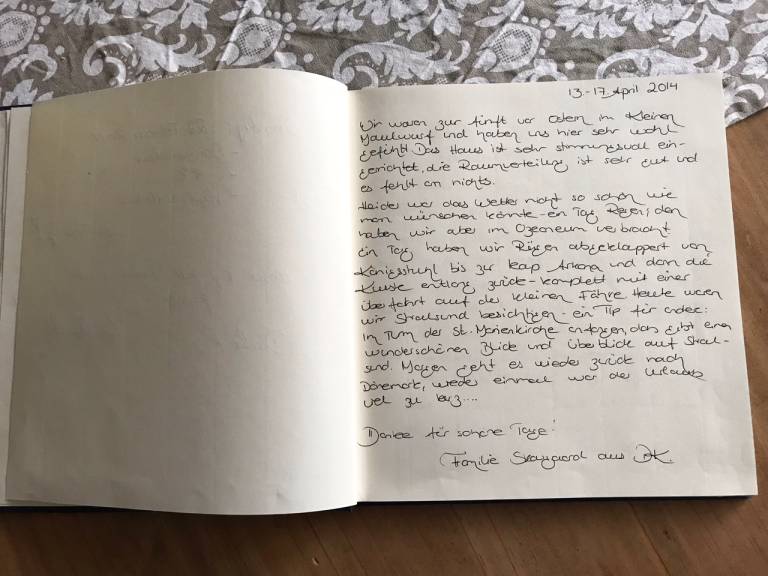 13.-17. April 2014
Wir waren zur fünft vor Ostern im Kleinen
Maulwurf und haben uns hier sehr wohl
gefühlt. Das Haus ist sehr stimmungsvoll ein-
gerichtet, die Raumverteilung ist sehr gut und
es fehlt an nichts.
Leider war das Wetter nicht so schön wie
man wünschen könnte - ein Tag Regen, den
haben wir aber im Ozeaneum verbracht
Ein Tag haben wir Rügen abgeklappert von
Königsstuhl bis zur Kap Arkona und dann die
Küste entlang zurück - komplett mit einer
Überfahrt auf der kleinen Fähre. Heute waren
wir Stralsund besichtigen - ein Tip für andere:
Im Turm der St. Marienkirche anfangen, das gibt einen
wunderschönen Blick und überblick auf Stral-
sund. Morgen geht es wieder zurück nach
Dänemark, wieder einmal war der Urlaub
viel zu kurz....
Danke für schöne Tage!
Familie aus DK.